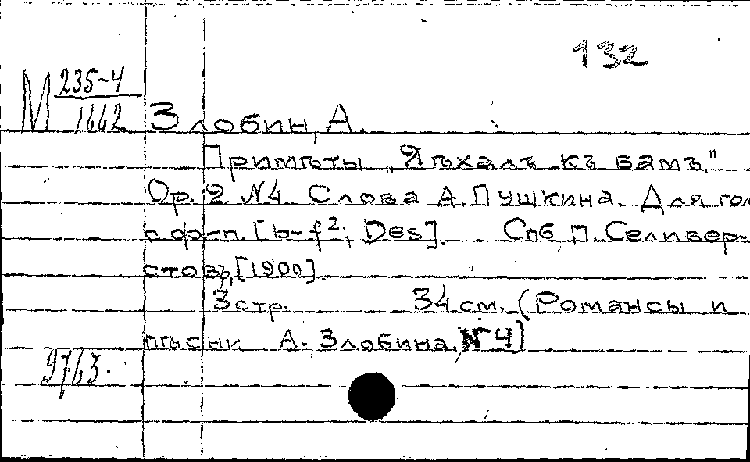 132
М 235-4
1662
Злобин, А.
Примѣты „Я ѣхалъ къ вамъ"
Op. 2 № 4. Слова А. Пушкина. Для гол.
с ф-п. [b-f²; Des]. Спб, П. Селивер-
стовъ, [1900].
3 стр. 34 см. (Романсы и
пѣсни А. Злобина, № 4)
9763.